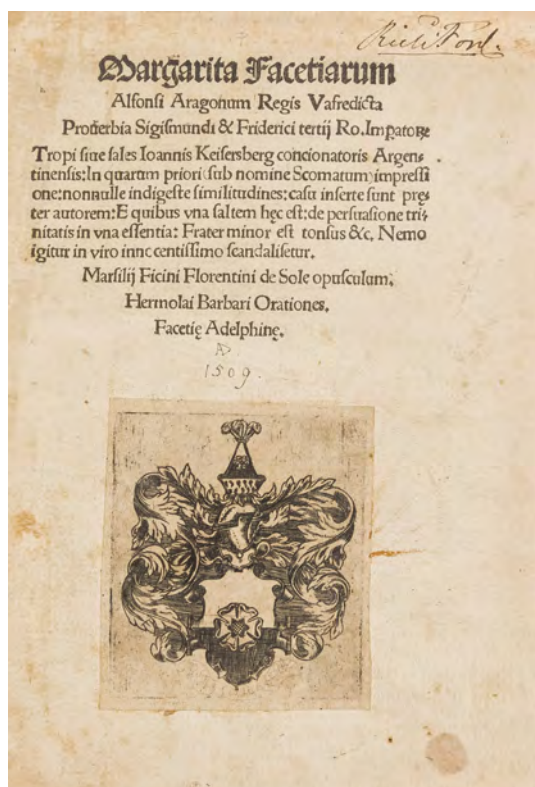 Margarita Facetiarum
Alfonsi Aragonum Regis Vafredicta
Prouerbia Sigismundi & Friderici tertij Ro. Impatorꝝ
Tropi siue sales Ioannis Keisersberg concionatoris Argen⸗
tinensis: In quartum priori sub nomine Scomatum: impressi
one: nonnulle indigeste similitudines: casu inserte sunt prę⸗
ter autorem: E quibus vna saltem hęc est: de persuasione tri⸗
nitatis in vna essentia: Frater minor est tonsus &c. Nemo
igitur in viro innocentissimo scandalisetur.
Marsilij Ficini Florentini de Sole opusculum.
Hermolai Barbari Orationes.
Facetię Adelphinę.
1509.